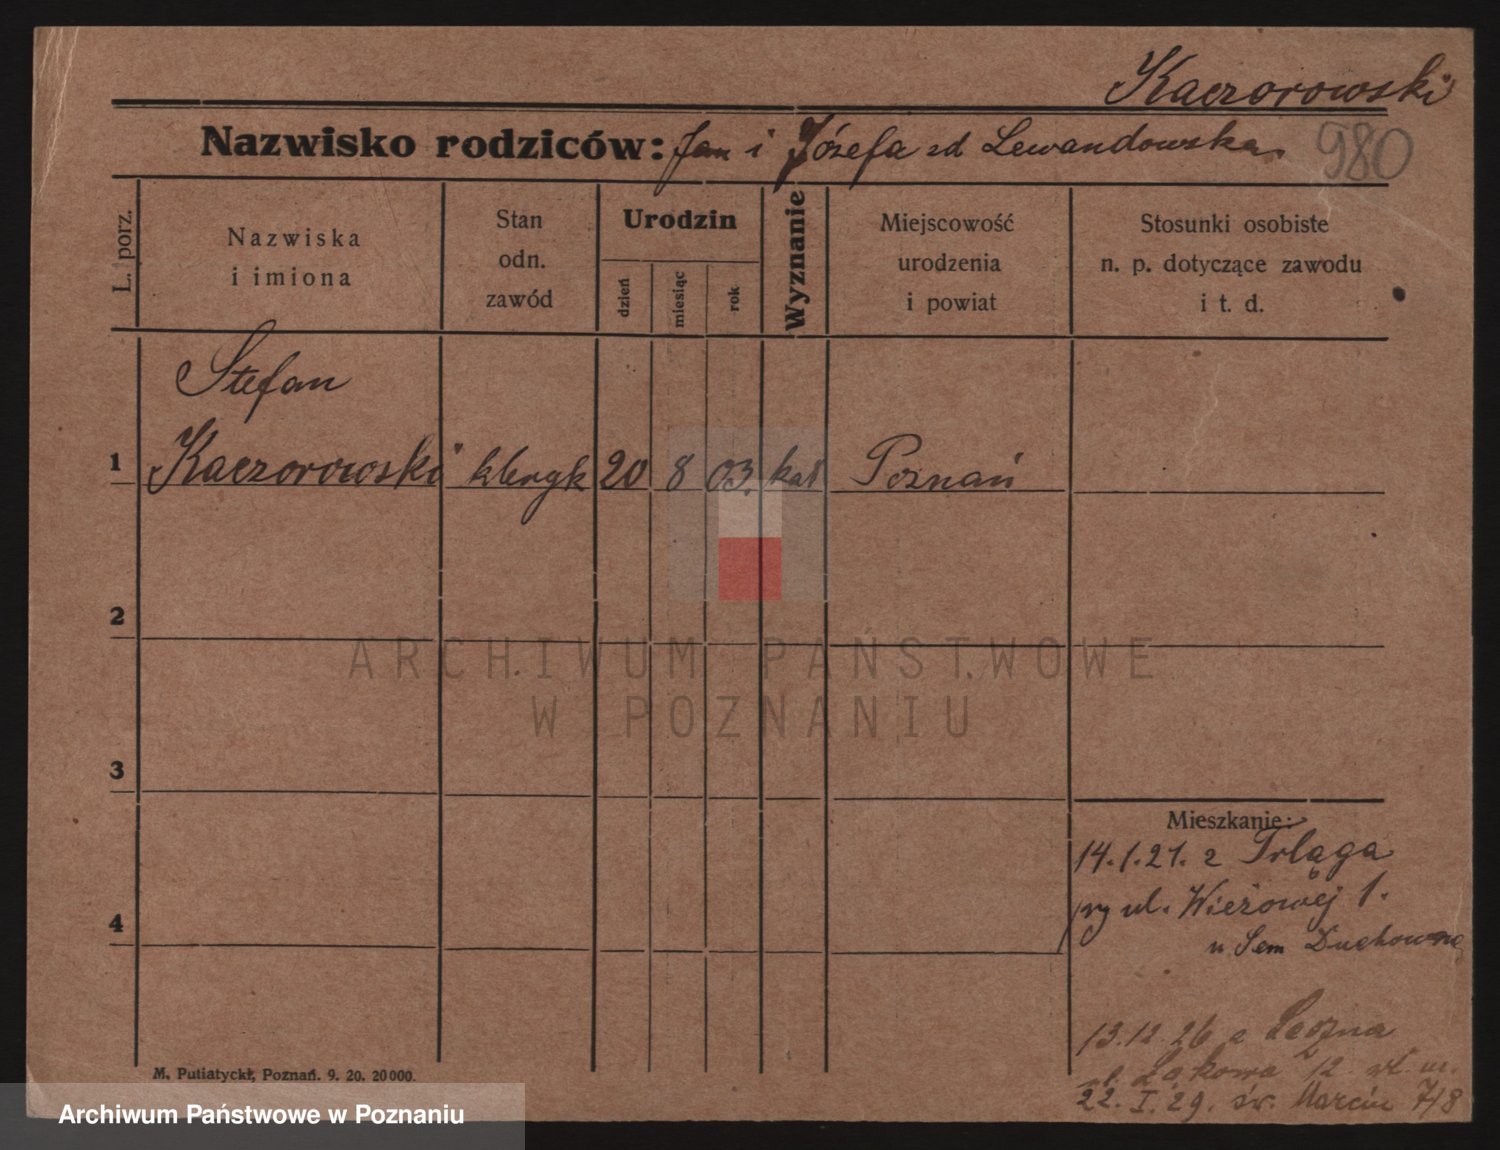 Kaczorowski
Nazwisko rodziców: Jan i Józefa zd Lewandowska.
980
L. porz.
Nazwiska
i imiona
Stan
odn.
zawód
Urodzin
dzień
miesiąc
rok
Wyznanie
Miejscowość
urodzenia
i powiat
Stosunki osobiste
n. p. dotyczące zawodu
i t. d.
Stefan
1 Kaczorowski kleryk 20 8 03. kat Poznań
2
ARCHIWUM PAŃSTWOWE
W POZNANIU
3
Mieszkanie:
14.1.21. z Trląga
4
przy ul. Wieżowej 1.
w Sem Duchowne
13.12.26 z
Łąkowa 12
22. I. 29. św. Marcin 7/8
M. Putiatycki, Poznań. 9. 20. 20000.
Archiwum Państwowe w Poznaniu